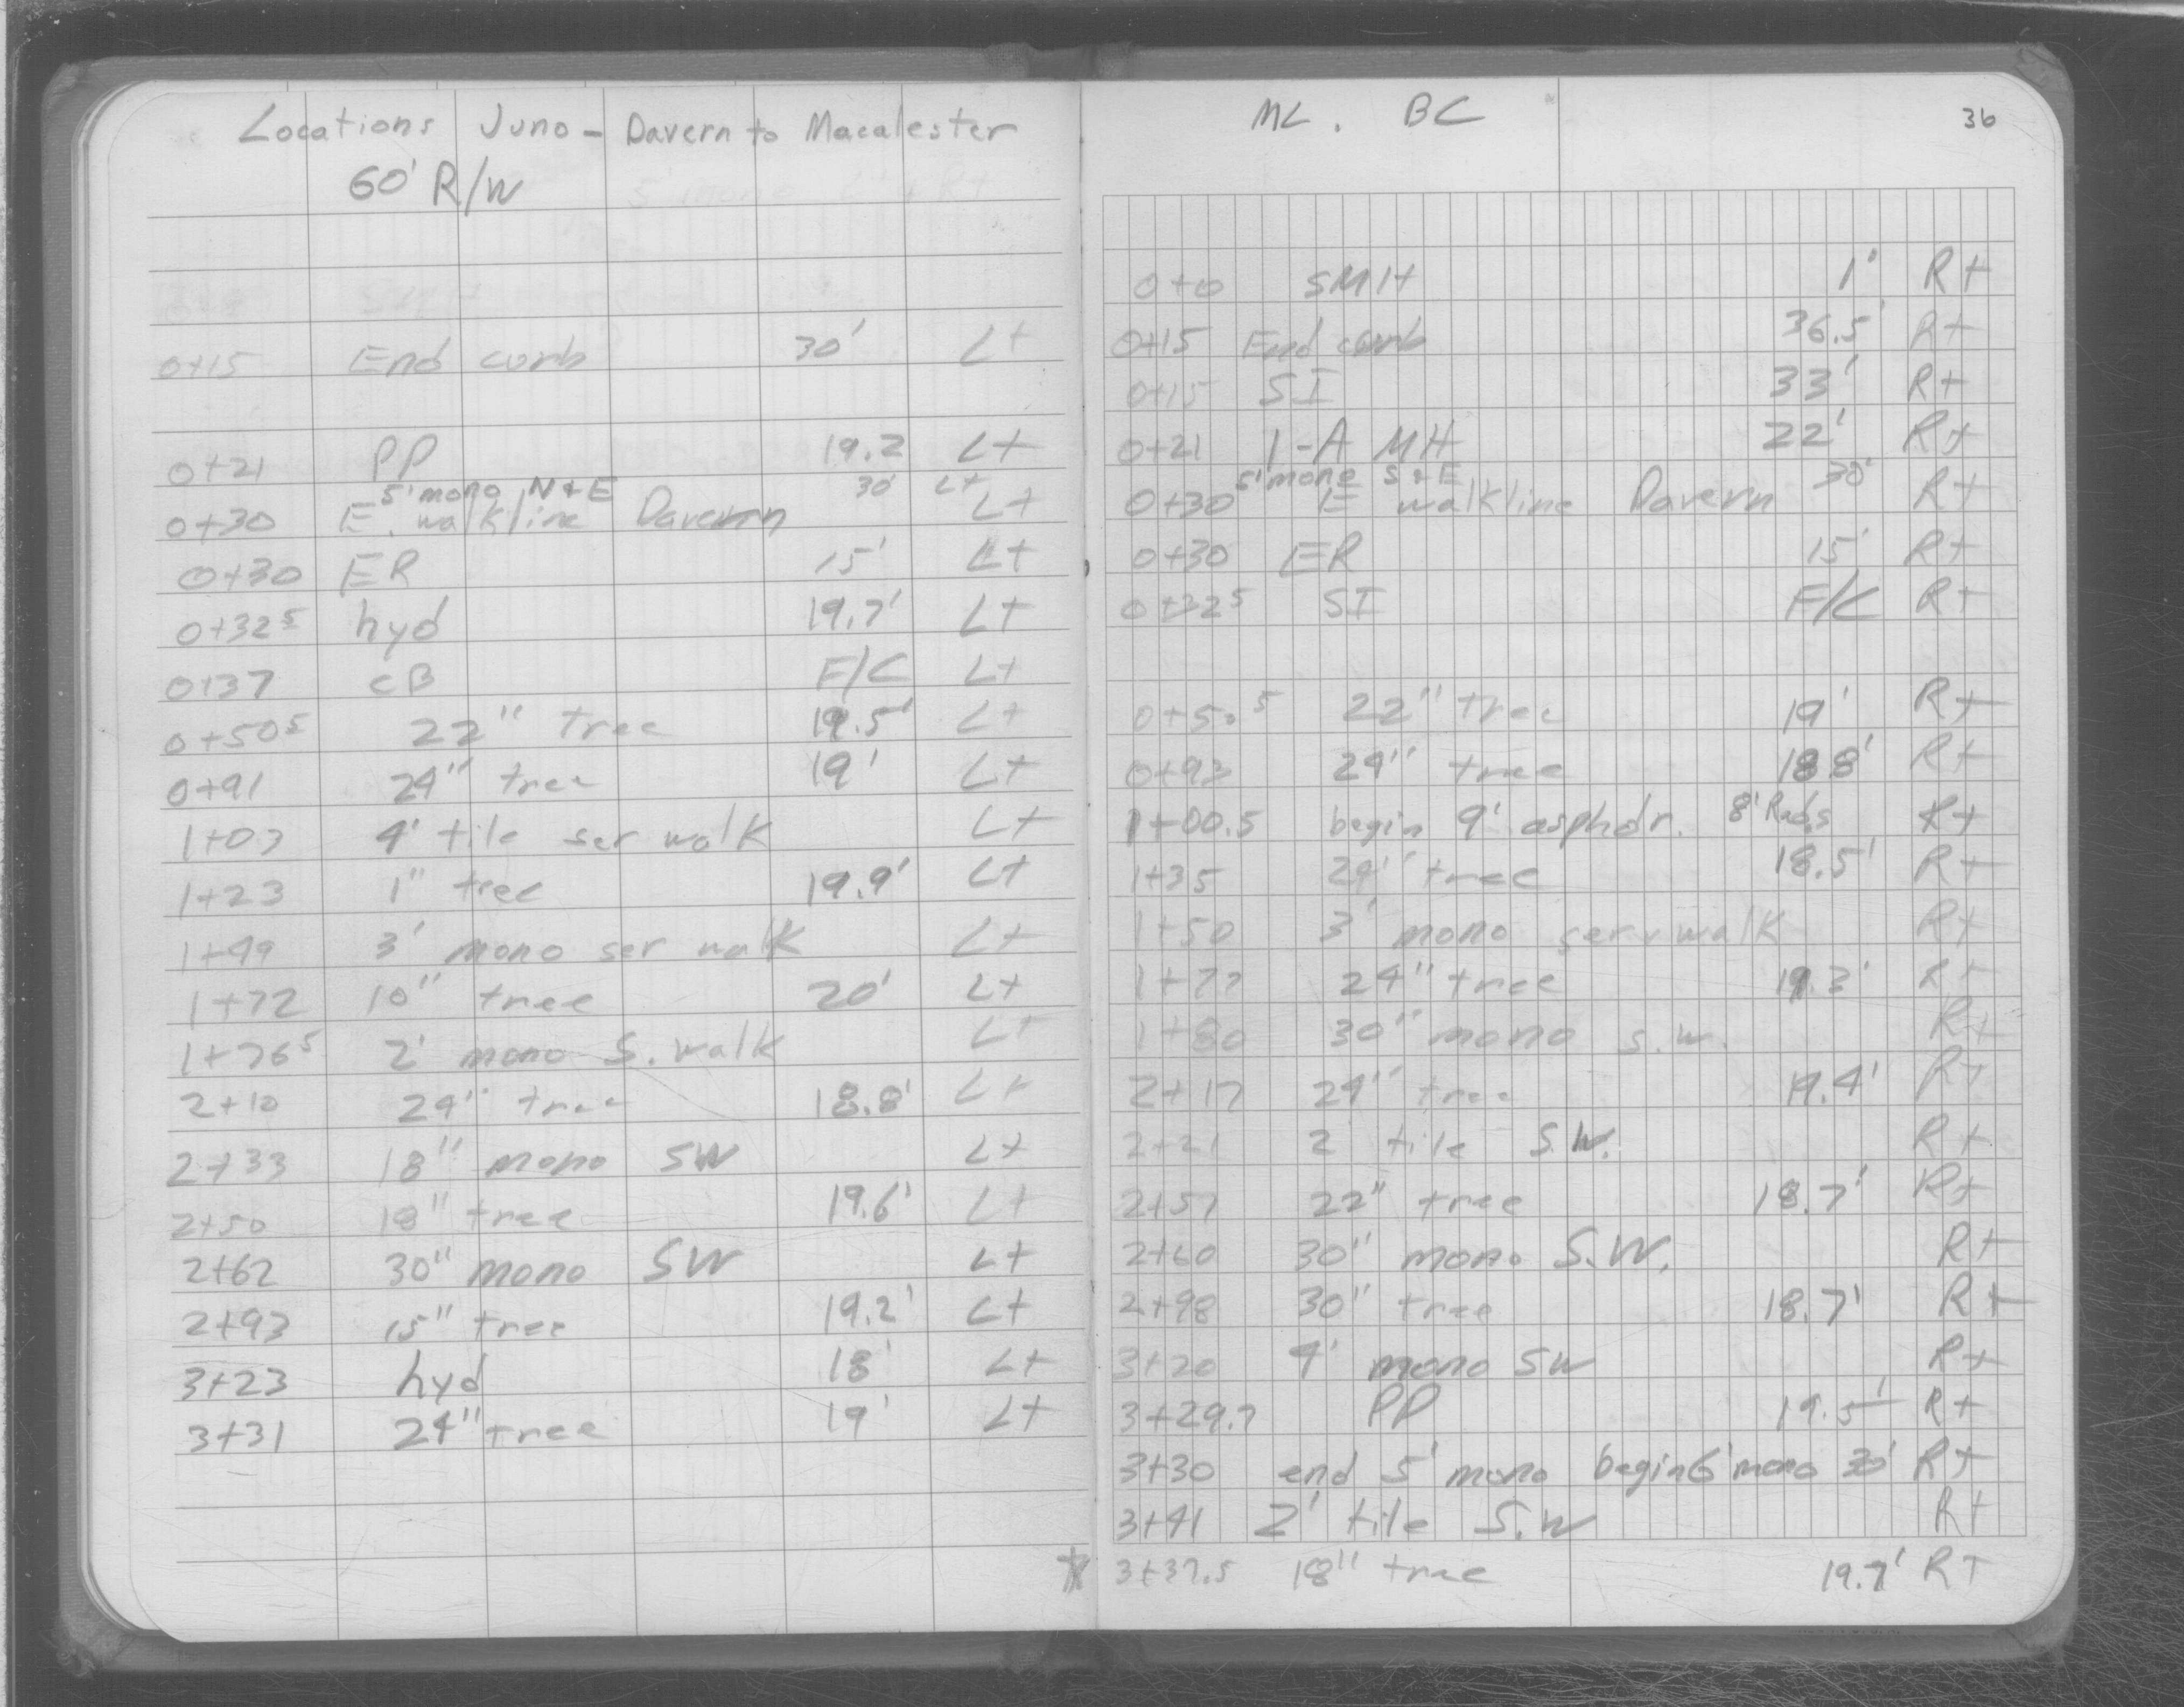 Locations Juno - Davern to Macalester
60' R/W
0+15 End curb 30' Lt
0+21 PP 19.2 Lt
5' mono N & E 30' Lt
0+30 E. walkline Davern Lt
0+30 ER 15' Lt
0+32⁵ hyd 19.7' Lt
0+37 CB F/C Lt
0+50⁵ 22" tree 19.5' Lt
0+91 24" tree 19' Lt
1+03 4' tile ser walk Lt
1+23 1" tree 19.9' Lt
1+49 3' mono ser walk Lt
1+72 10" tree 20' Lt
1+76⁵ 2' mono S. walk Lt
2+10 24" tree 18.8' Lt
2+33 18" mono SW Lt
2+50 18" tree 19.6' Lt
2+62 30" mono SW Lt
2+93 15" tree 19.2' Lt
3+23 hyd 18' Lt
3+31 24" tree 19' Lt
ML. BC
36
0+0 SMH 1' Rt
0+15 End curb 36.5' Rt
0+15 SI 33' Rt
0+21 1-A MH 22' Rt
5' mono S & E 30'
0+30 E walkline Davern Rt
0+30 ER 15' Rt
0+32⁵ SI F/C Rt
0+50⁵ 22" tree 19' Rt
0+93 24" tree 18.8' Rt
1+00.5 begin 9' asph dr. 8' Rads Rt
1+35 24" tree 18.5' Rt
1+50 3' mono serv walk Rt
1+77 24" tree 19.3' Rt
1+80 30" mono s.w. Rt
2+17 24" tree 19.4' Rt
2+21 2' tile S.W. Rt
2+57 22" tree 18.7' Rt
2+60 30" mono S.W. Rt
2+98 30" tree 18.7' Rt
3+20 4' mono SW Rt
3+29.7 PP 19.5' Rt
3+30 end 5' mono begin 6' mono 30' Rt
3+41 2' tile S.W Rt
* 3+37.5 18" tree 19.7' Rt